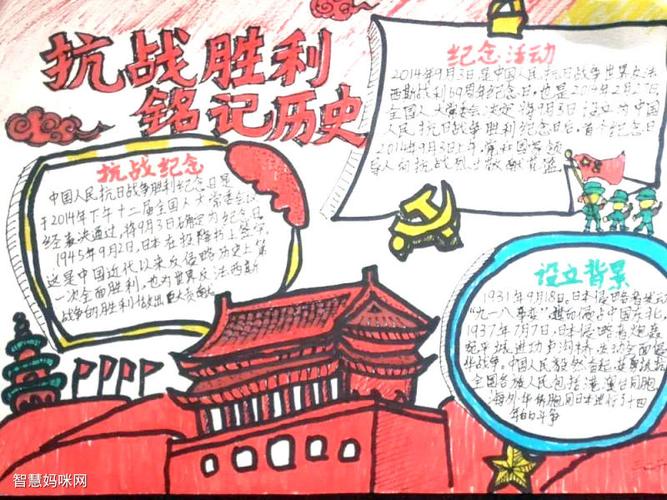 抗战胜利
铭记历史
纪念活动
2014年9月3日是中国人民抗日战争世界反法
西斯战利69周年纪念日,也是2014年2月27日
全国人大常委会决定将9月3日设立为中国
人民抗日战争胜利纪念日后首个纪念日
2014年9月3日上午,党和国家领
导人向抗战烈士敬献花篮
抗战纪念
中国人民抗日战争胜利纪念日是
于2014年下午十二届全国人大常委会
经表决通过,将9月3日确定为纪念日
1945年9月2日,日本在投降书上签字
这是中国近代以来反侵略历史上第
一次全面胜利,也为世界反法西斯
战争的胜利做出重大贡献
设立背景
1931年9月18日,日本侵略者发
"九一八事变"
1937年7月7日,日本侵略者炮轰
宛平城进攻卢沟桥,发动全面侵
华战争。中国人民毅然奋起
全国各族人民包括港澳台同胞
海外华侨同胞同日本进行了十四
年的斗争
智慧妈咪网